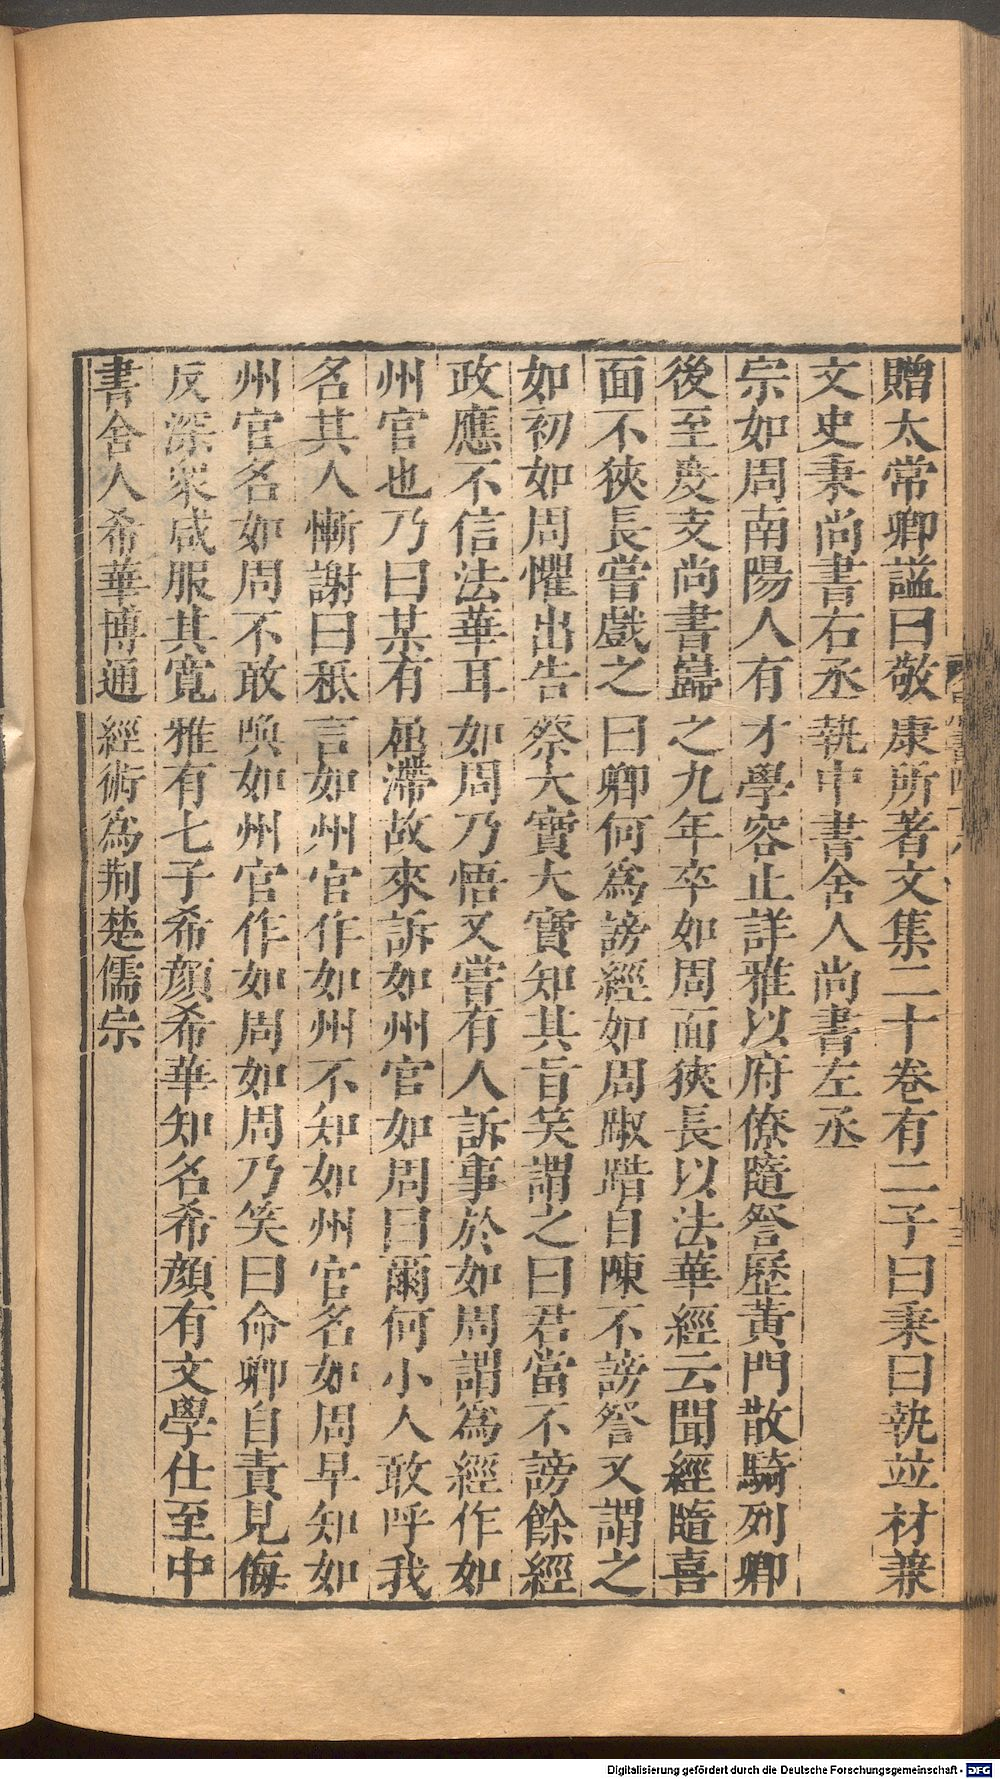 贈太常卿謚曰敬康所著文集二十卷有二子曰秉曰執竝材兼
文史秉尚書右丞執中書舍人尚書左丞
宗如周南陽人有才學容止詳雅以府僚隨詧歷黃門散騎列卿
後至度支尚書巋之九年卒如周面狹長以法華經云聞經隨喜
面不狹長嘗戲之曰卿何爲謗經如周踧踖自陳不謗詧又謂之
如初如周懼出告蔡大寶大寶知其旨笑謂之曰君當不謗餘經
政應不信法華耳如周乃悟又嘗有人訴事於如周謂爲經作如
州官也乃曰某有屈滯故來訴如州官如周曰爾何小人敢呼我
名其人慚謝曰秪言如州官作如州不知如州官名如周早知如
州官名如周不敢喚如州官作如周如周乃笑曰命卿自責見侮
反深衆咸服其寬雅有七子希顏希華知名希顏有文學仕至中
書舍人希華博通經術爲荆楚儒宗
Digitalisierung gefördert durch die Deutsche Forschungsgemeinschaft - DFG